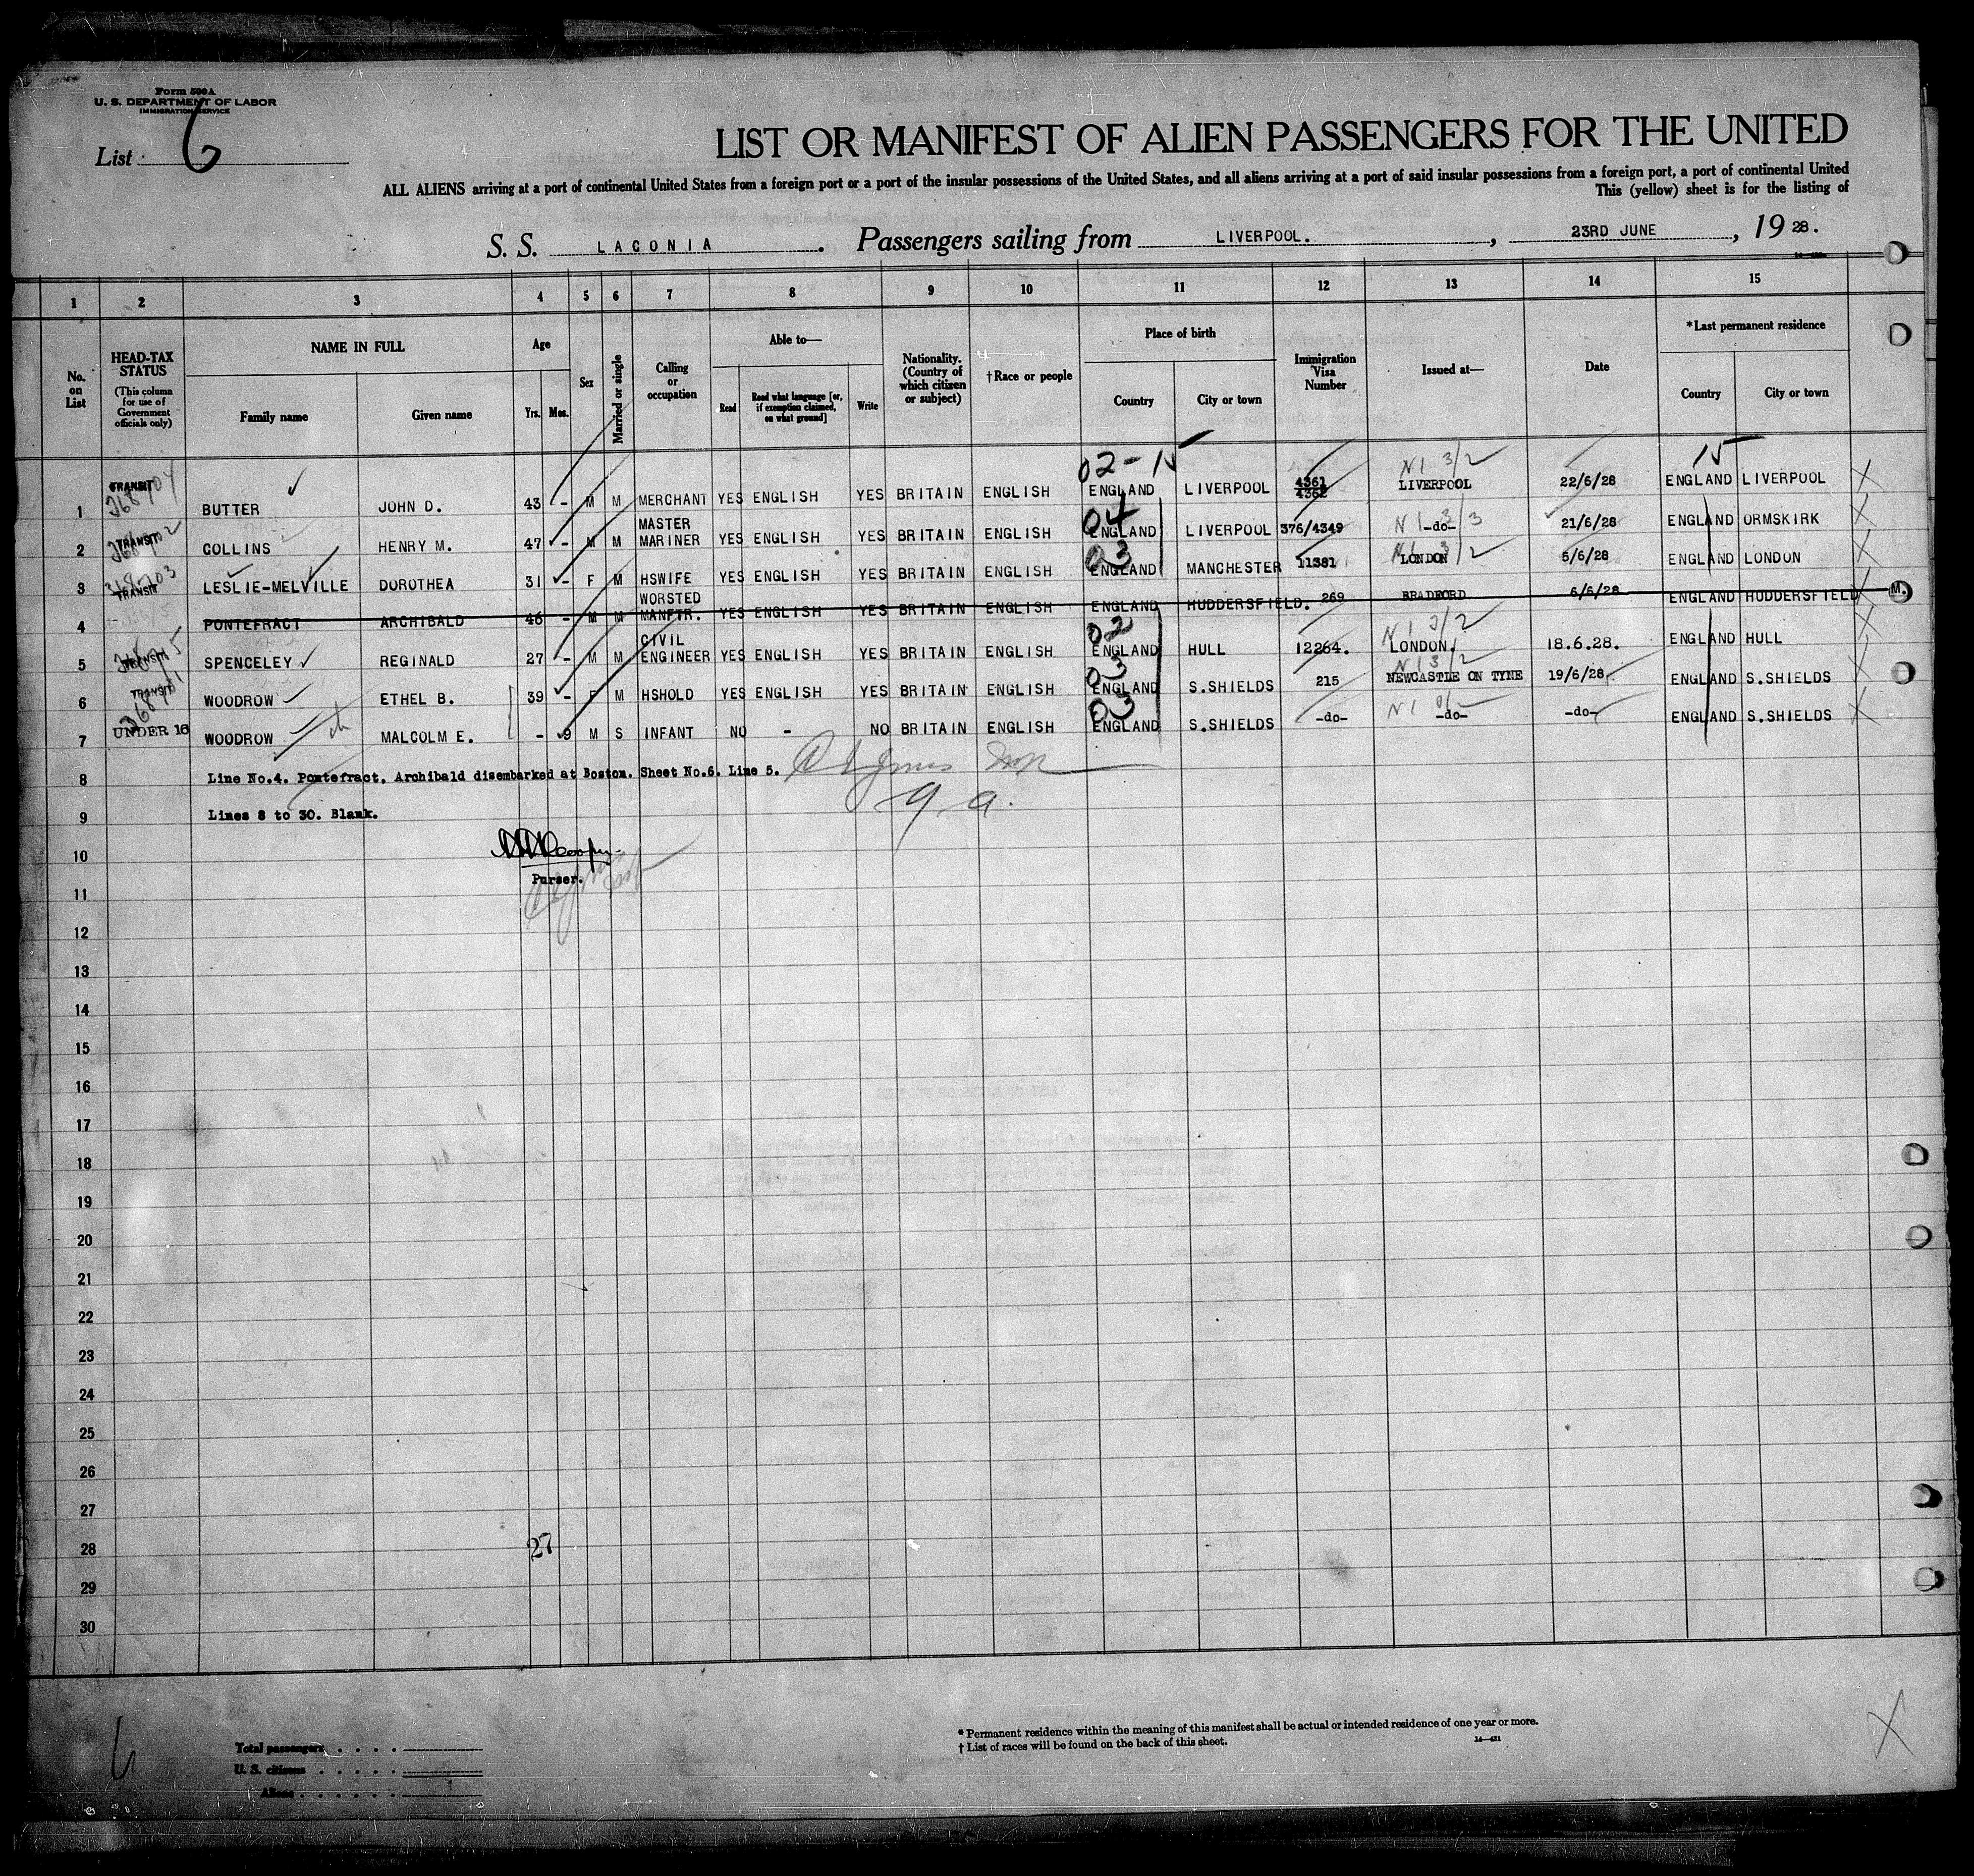 Form 500A
U. S. DEPARTMENT OF LABOR
IMMIGRATION SERVICE
List 6
LIST OR MANIFEST OF ALIEN PASSENGERS FOR THE UNITED
ALL ALIENS arriving at a port of continental United States from a foreign port or a port of the insular possessions of the United States, and all aliens arriving at a port of said insular possessions from a foreign port, a port of continental United
This (yellow) sheet is for the listing of
S. S. LACONIA. Passengers sailing from LIVERPOOL., 23RD JUNE, 19 28.
1 2 3 4 5 6 7 8 9 10 11 12 13 14 15
No. on List
HEAD-TAX STATUS
(This column for use of Government officials only)
NAME IN FULL
Family name Given name
Age
Yrs. Mos.
Sex
Married or single
Calling or occupation
Able to—
Read Read what language [or, if exemption claimed, on what ground] Write
Nationality. (Country of which citizen or subject)
†Race or people
Place of birth
Country City or town
Immigration Visa Number
Issued at—
Date
*Last permanent residence
Country City or town
02-15 N1 3/2 15
1 TRANSIT 268704 BUTTER JOHN D. 43 - M M MERCHANT YES ENGLISH YES BRITAIN ENGLISH ENGLAND LIVERPOOL 4361 4362 LIVERPOOL 22/6/28 ENGLAND LIVERPOOL
2 TRANSIT COLLINS HENRY M. 47 - M M MASTER MARINER YES ENGLISH YES BRITAIN ENGLISH 04 ENGLAND LIVERPOOL 376/4349 N1 3/3 -do- 21/6/28 ENGLAND ORMSKIRK
3 TRANSIT LESLIE-MELVILLE DOROTHEA 31 - F M HSWIFE YES ENGLISH YES BRITAIN ENGLISH 03 ENGLAND MANCHESTER 11381 N1 3/2 LONDON 5/6/28 ENGLAND LONDON
4 PONTEFRACT ARCHIBALD 46 - M M WORSTED MANFTR. YES ENGLISH YES BRITAIN ENGLISH ENGLAND HUDDERSFIELD. 269 BRADFORD 6/6/28 ENGLAND HUDDERSFIELD M.
5 SPENCELEY REGINALD 27 - M M CIVIL ENGINEER YES ENGLISH YES BRITAIN ENGLISH 02 ENGLAND HULL 12264. N1 3/2 LONDON. 18.6.28. ENGLAND HULL
6 TRANSIT WOODROW ETHEL B. 39 - F M HSHOLD YES ENGLISH YES BRITAIN ENGLISH 03 ENGLAND S.SHIELDS 215 N1 3/2 NEWCASTLE ON TYNE 19/6/28 ENGLAND S.SHIELDS
7 UNDER 16 WOODROW MALCOLM E. - 9 M S INFANT NO - NO BRITAIN ENGLISH 03 ENGLAND S.SHIELDS -do- N1 -do- -do- ENGLAND S.SHIELDS
8 Line No.4. Pontefract. Archibald disembarked at Boston. Sheet No.6. Line 5.
9 Lines 8 to 30. Blank.
10
Purser.
11
12
13
14
15
16
17
18
19
20
21
22
23
24
25
26
27
28 27
29
30
* Permanent residence within the meaning of this manifest shall be actual or intended residence of one year or more.
† List of races will be found on the back of this sheet.
Total passengers
U. S. citizens
Aliens